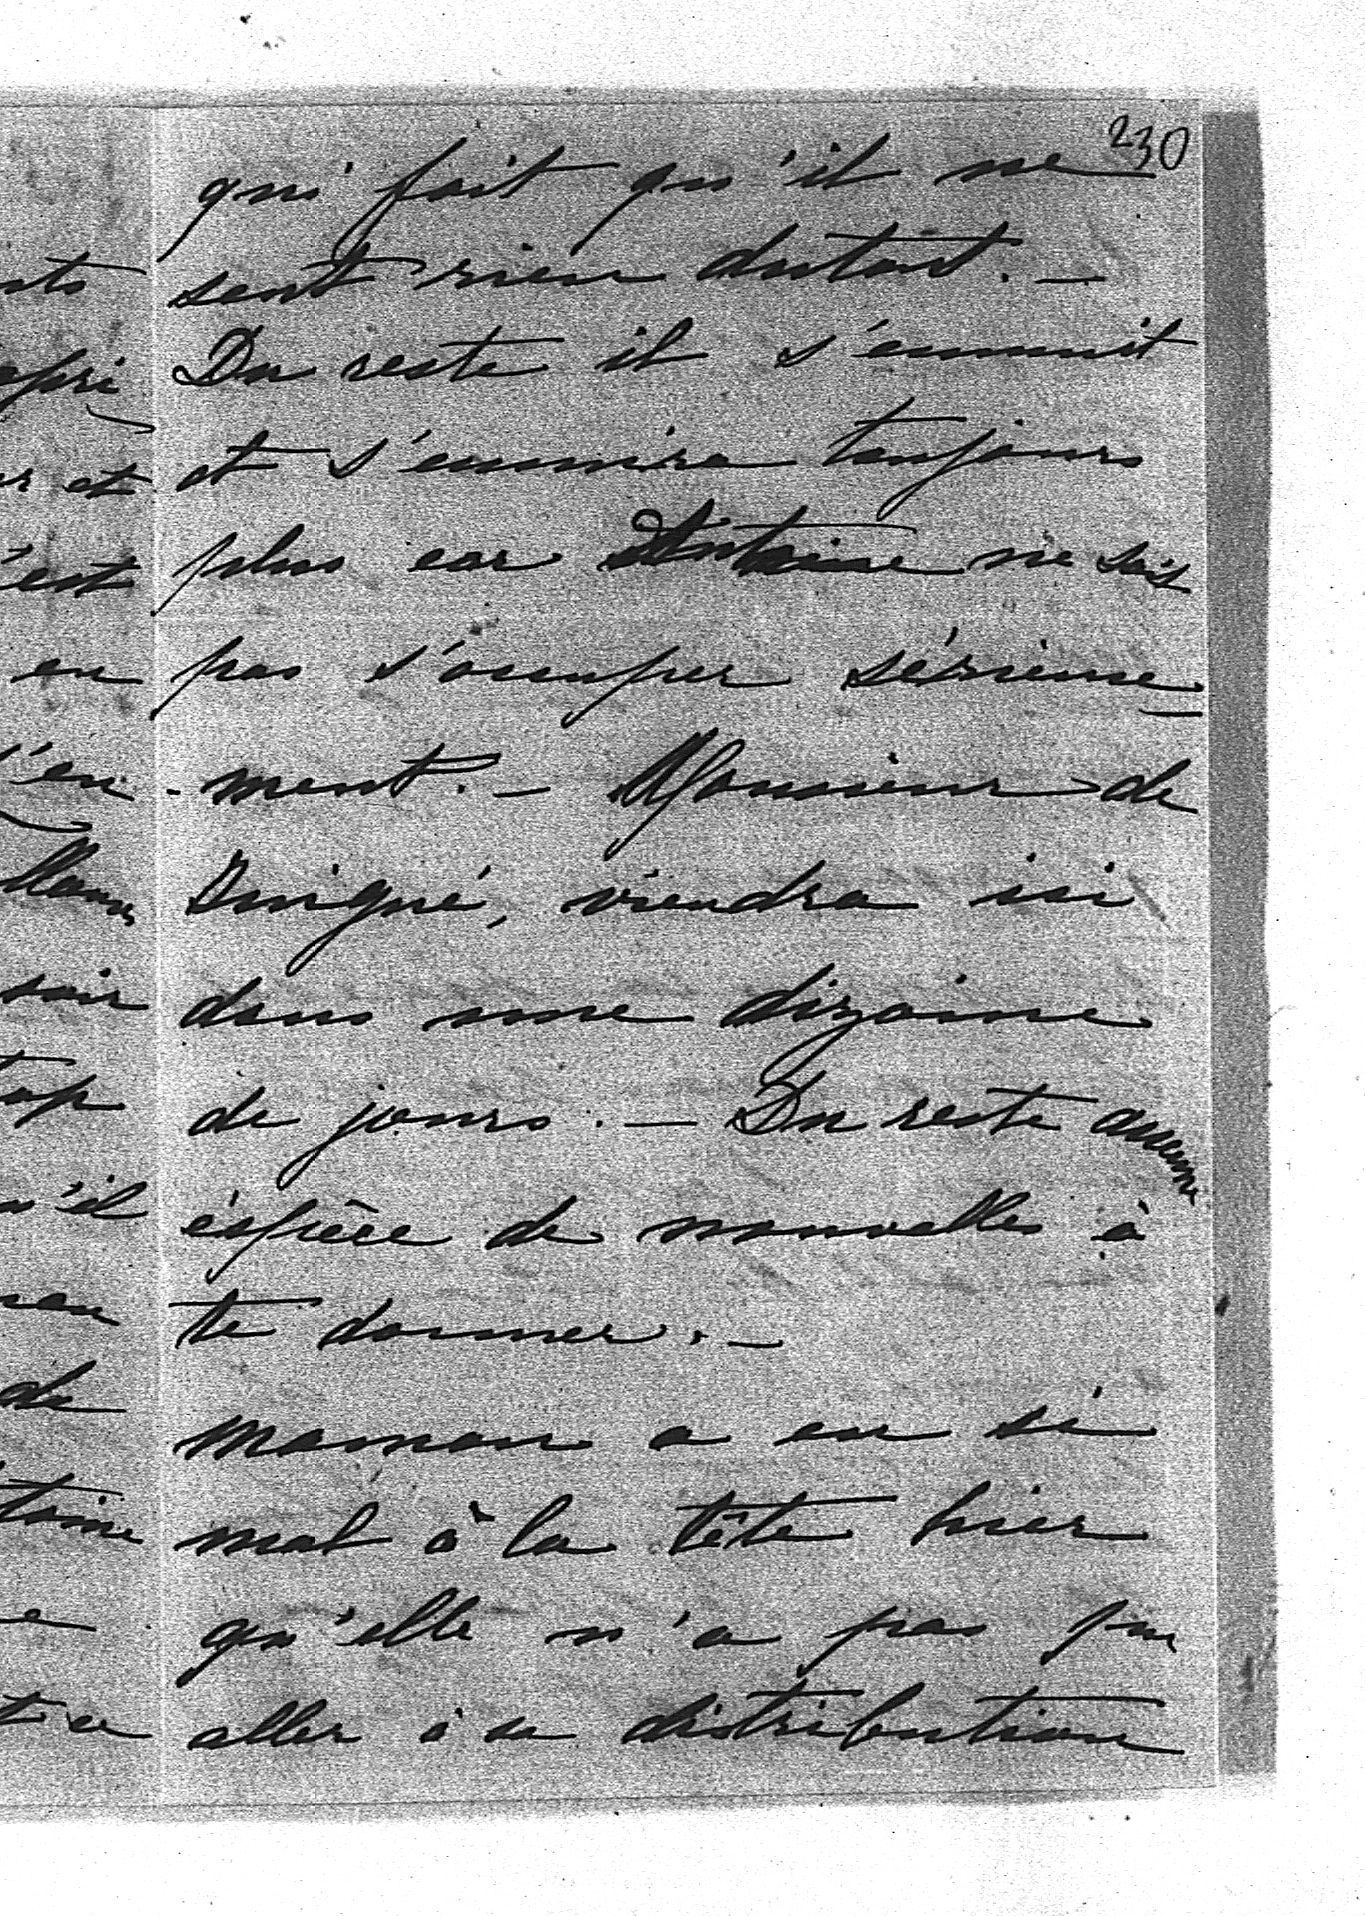 230
qui fait qu'il ne
sent rien dutout. —
Du reste il s'ennuit
et s'ennuira toujours
plus car Antoine ne sais
pas s'occuper sérieuse
ment. — Monsieur de
viendra ici
dans une dizaine
de jours. — Du reste aucune
éspèce de nouvelles à
te donner. —
maman a eu si
mal à la tête hier
qu'elle n'a pas pu
aller à sa distribution